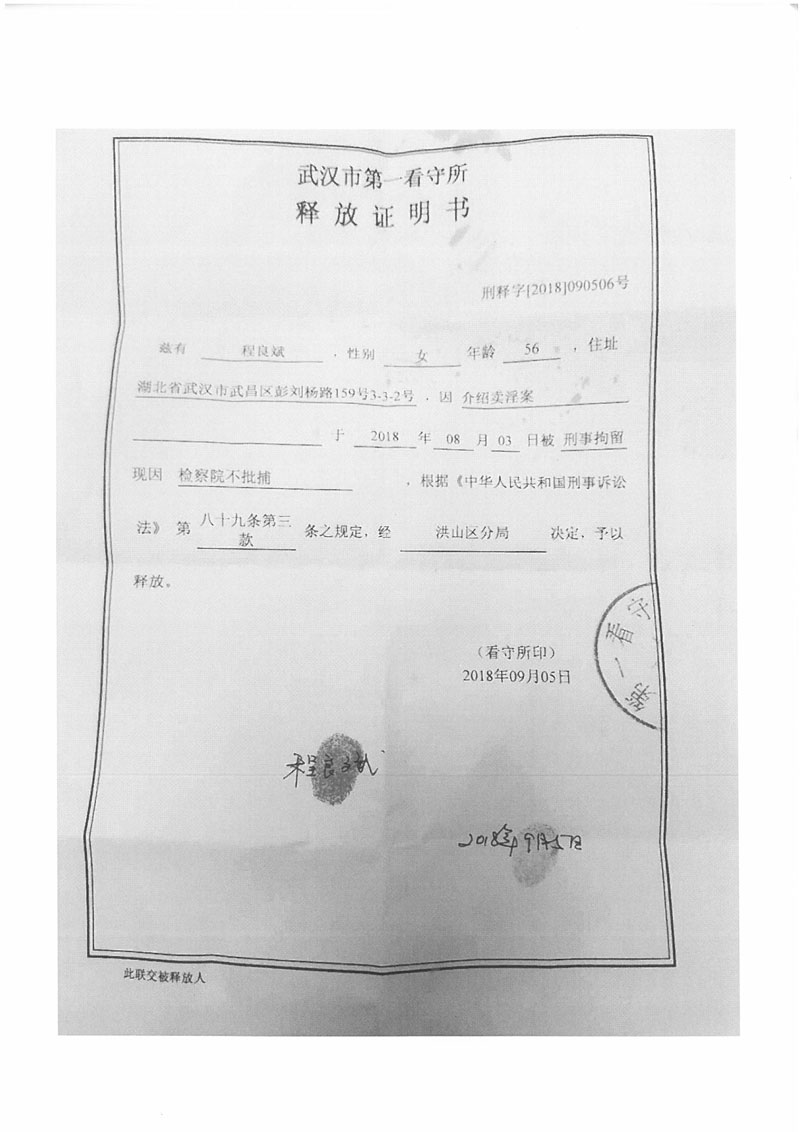 武汉市第一看守所
释放证明书
刑释字[2018]090506号
兹有 程良斌 ，性别 女 年龄 56 ，住址
湖北省武汉市武昌区彭刘杨路159号3-3-2号 ，因 介绍卖淫案
于 2018 年 08 月 03 日被 刑事拘留
现因 检察院不批捕 ，根据《中华人民共和国刑事诉讼
法》第 八十九条第三款 条之规定，经 洪山区分局 决定，予以
释放。
第一看守
（看守所印）
2018年09月05日
程良斌
2018年9月5日
此联交被释放人